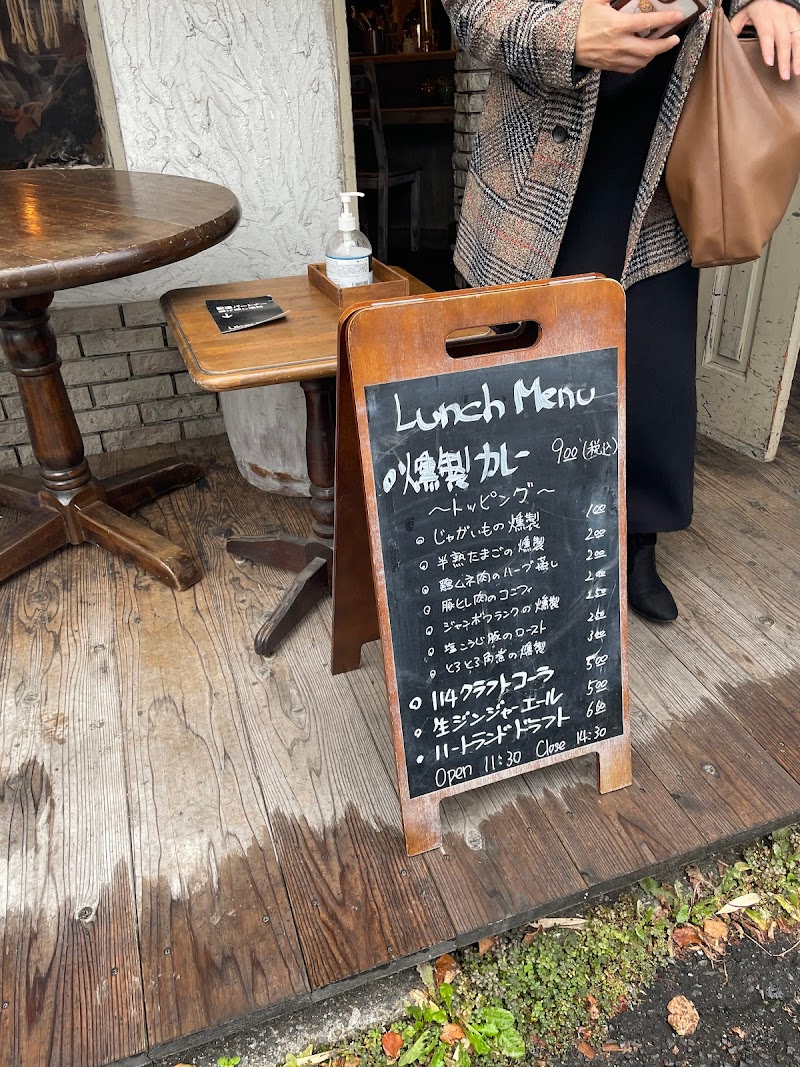 Lunch Menu
燻製カレー 900(税込)
〜トッピング〜
じゃがいもの燻製 100
半熟たまごの燻製 200
鶏ムネ肉のハーブ蒸し 200
豚とし肉のコニフィ 200
ジャンボフランクの燻製 250
塩こうじ豚のロースト 250
とろとろ角煮の燻製 300
114クラフトコーラ 500
生ジンジャーエール 500
ハートランドドラフト 600
Open 11:30 Close 14:30